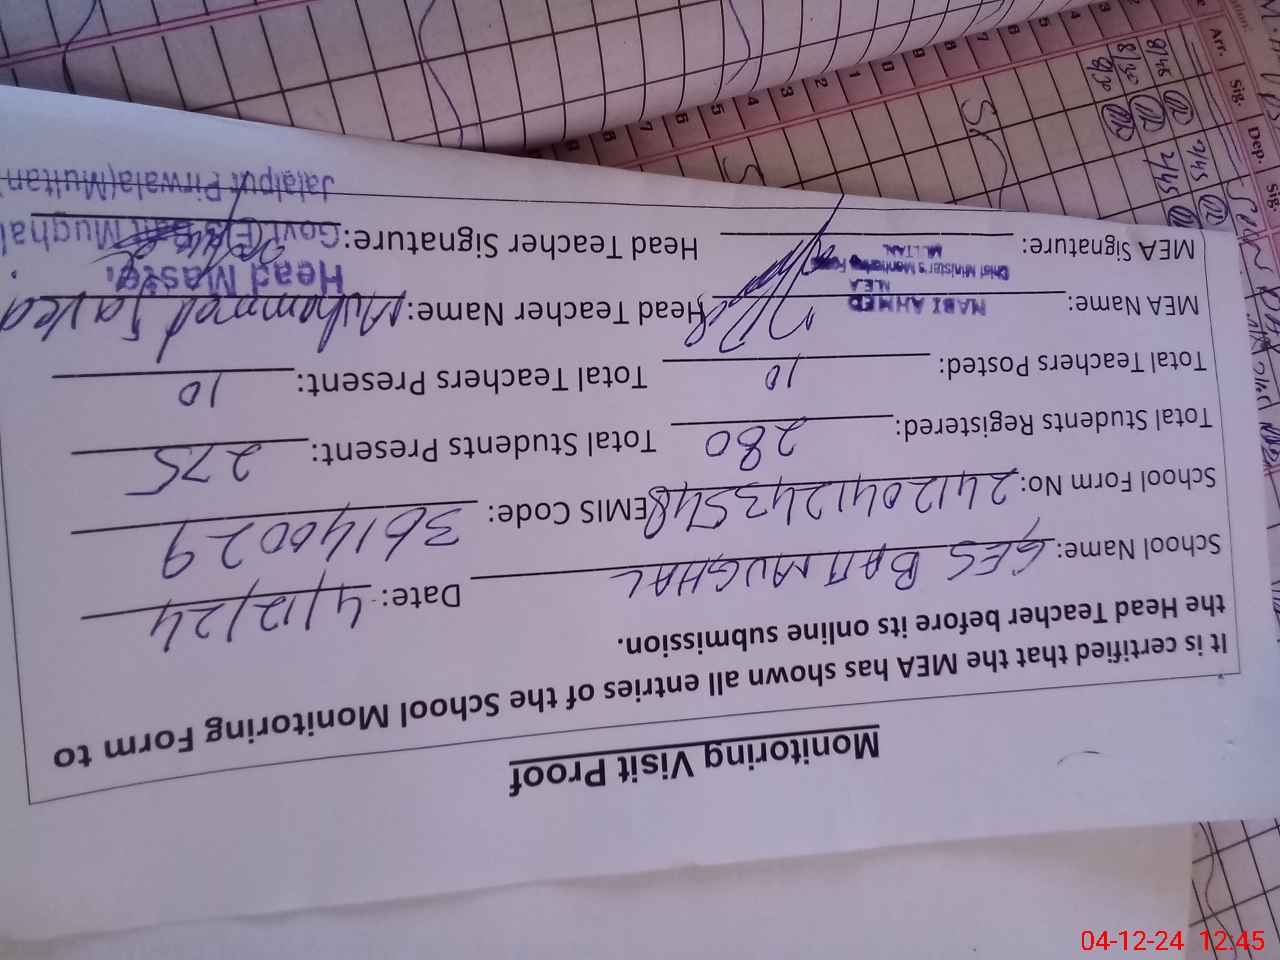 Monitoring Visit Proof
It is certified that the MEA has shown all entries of the School Monitoring Form to
the Head Teacher before its online submission.
School Name: GES BATI MUGHAL Date: 4/12/24
School Form No: 2412041243548 EMIS Code: 36140029
Total Students Registered: 280 Total Students Present: 275
Total Teachers Posted: 10 Total Teachers Present: 10
MEA Name: NABI AHMED Head Teacher Name: Muhammad Javed
M.E.A
Chief Minister's Monitoring Force
MULTAN
MEA Signature: Head Teacher Signature:
Head Master
Govt. E/S Mughal
Jalalpur Pirwala (Multan
Arr. Sig. Dep. Sig
8:45 745
8/30 245
8/30
04-12-24 12:45